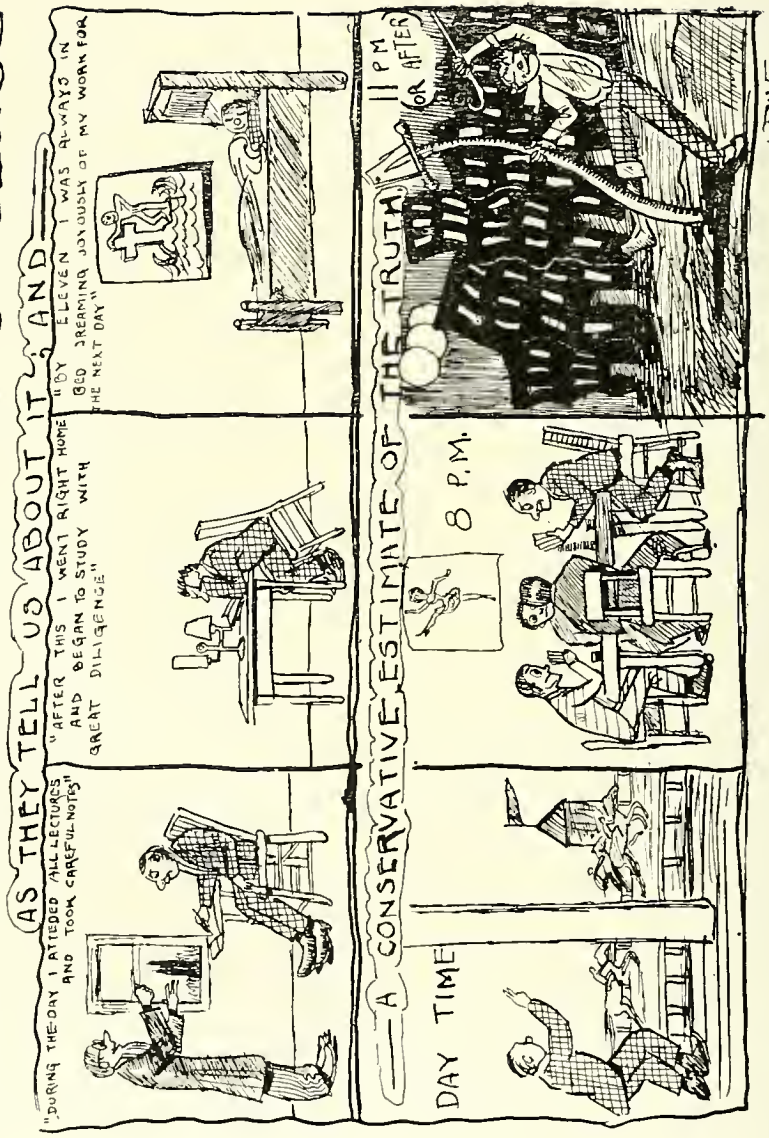 AS THEY TELL US ABOUT IT", AND
"DURING THE DAY I ATTEDED ALL LECTURES
AND TOOK CAREFUL NOTES"
"AFTER THIS I WENT RIGHT HOME
AND BEGAN TO STUDY WITH
GREAT DILIGENCE"
"BY ELEVEN I WAS ALWAYS IN
BED DREAMING JOYOUSLY OF MY WORK FOR
THE NEXT DAY"
A CONSERVATIVE ESTIMATE OF THE TRUTH.
DAY TIME
8 P.M.
11 P M
OR AFTER